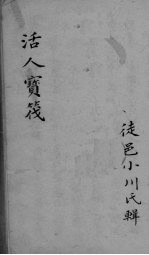 徒邑小川氏輯
活人寳筏